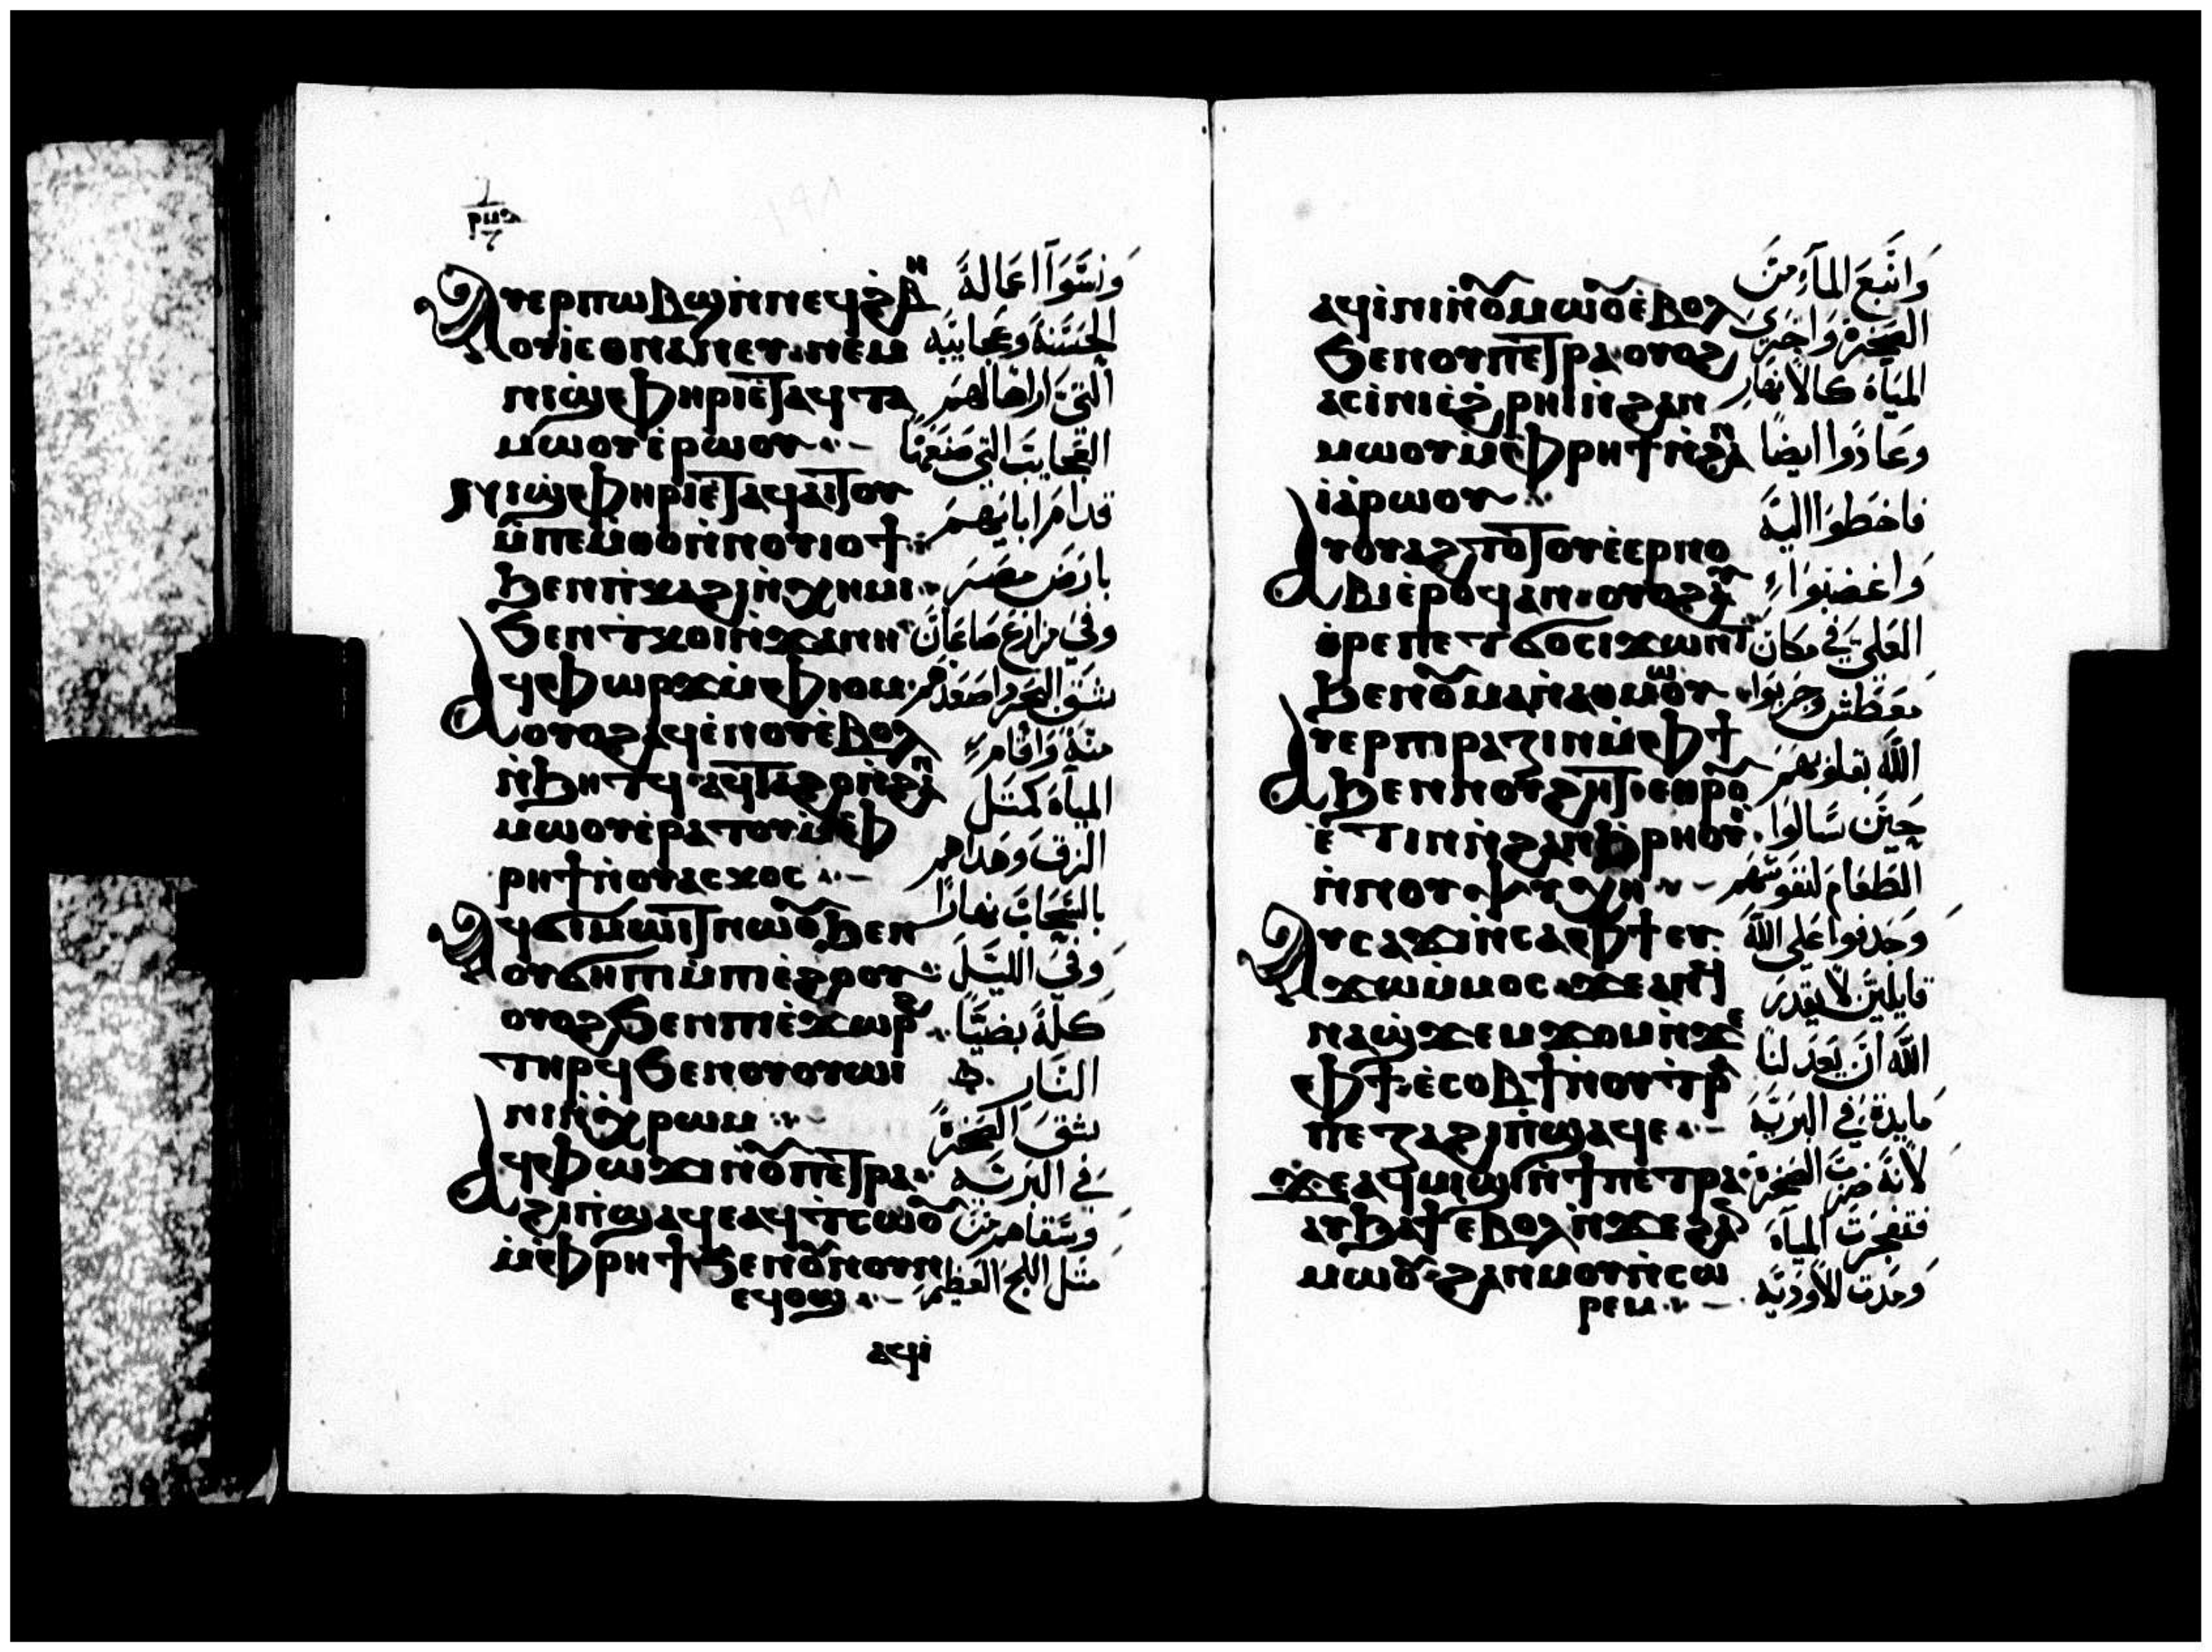 ⲣⲙⲑ
Ⲁⲩⲉⲣⲡⲱⲃϣ ⲛ̀ⲛⲉϥϩⲃⲏ
ⲟⲩⲓ ⲉⲑⲛⲁⲛⲉⲩ ⲛⲉⲙ
ⲛⲓϣⲫⲏⲣⲓ ⲉⲧⲁϥⲧⲁ
ⲙⲱⲟⲩ ⲉ̀ⲣⲱⲟⲩ
ⲛⲓϣⲫⲏⲣⲓ ⲉⲧⲁϥⲁⲓⲧⲟⲩ
ⲙ̀ⲡⲉⲙⲑⲟ ⲛ̀ⲛⲟⲩⲓⲟϯ
ϧⲉⲛ ⲡ̀ⲕⲁϩⲓ ⲛ̀ⲭⲏⲙⲓ
ϧⲉⲛ ⲧ̀ⲕⲟⲓ ⲛ̀ϫⲁⲛⲏ
ⲁϥⲫⲱⲣϫ ⲙ̀ⲫⲓⲟⲙ
ⲟⲩⲟϩ ⲁϥⲉⲛⲟⲩ ⲉ̀ⲃⲟⲗ
ⲛ̀ϧⲏⲧϥ ⲁϥⲧⲁϩⲟ ⲛ̀ϩⲁⲛ
ⲙⲱⲟⲩ ⲉ̀ⲣⲁⲧⲟⲩ ⲙ̀ⲫ
ⲣⲏϯ ⲛ̀ⲟⲩⲁⲥⲕⲟⲥ
ⲁϥϭⲓⲙⲱⲓⲧ ⲛⲱⲟⲩ ϧⲉⲛ
ⲟⲩϭⲏⲡⲓ ⲙ̀ⲡⲓⲉϩⲟⲟⲩ
ⲟⲩⲟϩ ϧⲉⲛ ⲡⲓⲉϫⲱⲣϩ
ⲧⲏⲣϥ ϧⲉⲛ ⲟⲩⲟⲩⲱⲓ
ⲛⲓ ⲛ̀ⲭⲣⲱⲙ
ⲁϥⲫⲱϫⲓ ⲛ̀ⲟⲩⲡⲉⲧⲣⲁ
ϩⲓ ⲡ̀ϣⲁϥⲉ ⲁϥⲧ̀ⲥⲱⲟⲩ
ⲙ̀ⲫⲣⲏϯ ϧⲉⲛ ⲟⲩⲛⲟⲩⲛ
ⲉϥⲟϣ
ⲁϥⲓ
وَنسَوا اعماله
الحسَنة وعجايبه
التي اراها لهم
العجايب التي صنعها
قدام ابايهم
بارض مصر
وفي مزارع صاعان
شق البحر واصعدهم
منه واقام
المياه كمثل
الزق وهداهم
بالسحاب نهارا
وفي الليل
كله بضيا
النار
شق الصخرة
في البرية
وسقاهم من
مثل اللجج العظيم
ⲁϥⲓⲛⲓ ⲛ̀ⲟⲩⲙⲱⲟⲩ ⲉ̀ⲃⲟⲗ
ϧⲉⲛ ⲟⲩⲡⲉⲧⲣⲁ ⲟⲩⲟϩ
ⲁⲥⲓⲛⲓ ⲉ̀ϩⲣⲏⲓ ⲛ̀ϩⲁⲛ
ⲙⲱⲟⲩ ⲙ̀ⲫⲣⲏϯ ⲛ̀ϩⲁⲛ
ⲓⲁⲣⲱⲟⲩ
ⲁⲩⲟⲩⲁϩⲧⲟⲧⲟⲩ ⲉ̀ⲉⲣⲛⲟ
ⲃⲓ ⲉ̀ⲣⲟϥ ⲁⲛ ⲟⲩⲟϩ ⲁⲩ
ⲑⲣⲉ ⲡⲉⲧϭⲟⲥⲓ ϫⲱⲛⲧ
ϧⲉⲛ ⲟⲩⲙⲁ ⲛ̀ⲁⲑⲙⲱⲟⲩ
ⲁⲩⲉⲣⲡⲓⲣⲁⲍⲓⲛ ⲙ̀ⲫϯ
ϧⲉⲛ ⲛⲟⲩϩⲏⲧ ⲉⲑⲣⲟⲩ
ⲉ̀ⲧⲓⲛ ⲛ̀ϩⲁⲛϧⲣⲏⲟⲩⲓ
ⲛ̀ⲛⲟⲩⲯⲩⲭⲏ
Ⲁⲩⲥⲁϫⲓ ⲛ̀ⲥⲁ ⲫϯ ⲉⲩ
ϫⲱ ⲙ̀ⲙⲟⲥ ϫⲉ ⲁⲛ ϥ
ⲛⲁϣϫⲉⲙϫⲟⲙ ⲛ̀ϫⲉ
ⲫϯ ⲉ̀ⲥⲟⲃϯ ⲛ̀ⲟⲩⲧⲣⲁ
ⲡⲉⲍⲁ ϩⲓ ⲡ̀ϣⲁϥⲉ
ϫⲉ ⲁϥⲙⲓϣⲓ ⲛ̀ϯⲡⲉⲧⲣⲁ
ⲁⲩϧⲁϯ ⲉⲃⲟⲗ ⲛ̀ϫⲉ ϩⲁⲛ
ⲙⲱⲟⲩ ϩⲁⲛⲙⲟⲩⲛⲥⲱ
ⲣⲉⲙ
وانبع الماء من
الصخرة واجرى
المياه كالانهار
وعادوا ايضا
فاخطوا اليه
واغضبوا
العلي في مكان
معطش وجربوا
الله بقلوبهم
حين سالوا
الطعام لنفوسهم
وتحدثوا على الله
قايلين لا يقدر
الله ان يعد لنا
مايدة في البرية
لانه ضرب الصخرة
فتفجرت المياه
وجرت الاودية